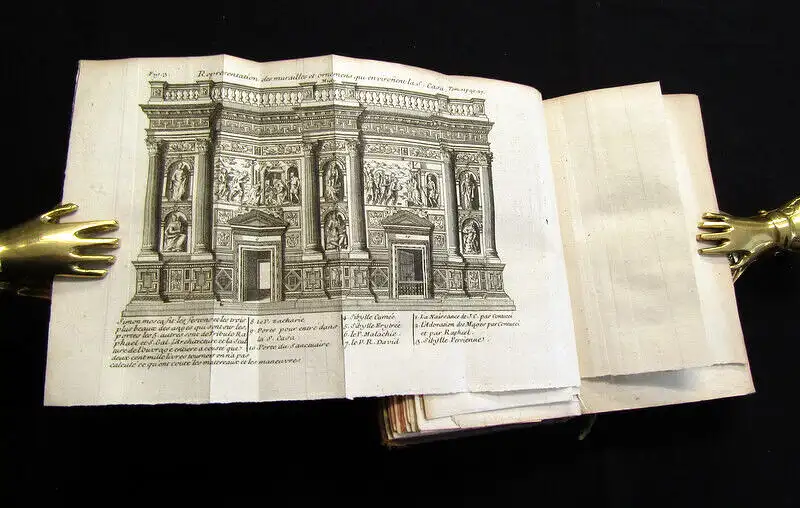 Representation des murailles et ornemens qui environent la S. Casa. Tom.
Simon mosca fit les festons et les trois
plus beaux des anges qui sont sur les
portes les autres sont de Tribulo Ra
phael et S. Gal. l'Architecture et la Scul
ture de l'Ouvrage entiere a couste que
deux cent mille livres tournon on n'a pas
calculé ce qu'ont couté les matereaux et les maneuvres.
8. le P. zacharie
9. Porte pour entre dans
la S. Casa
10. Porte du Sanctuaire
4. Sibylle Cumée
5. Sibylle Erytrée
6. le P. Malachie
7. le P. R. David
1. La Naissance de J.C. par Contucci
2. l'Adoration des Mages par Contucci
et par Raphael.
3. Sibylle Persienne